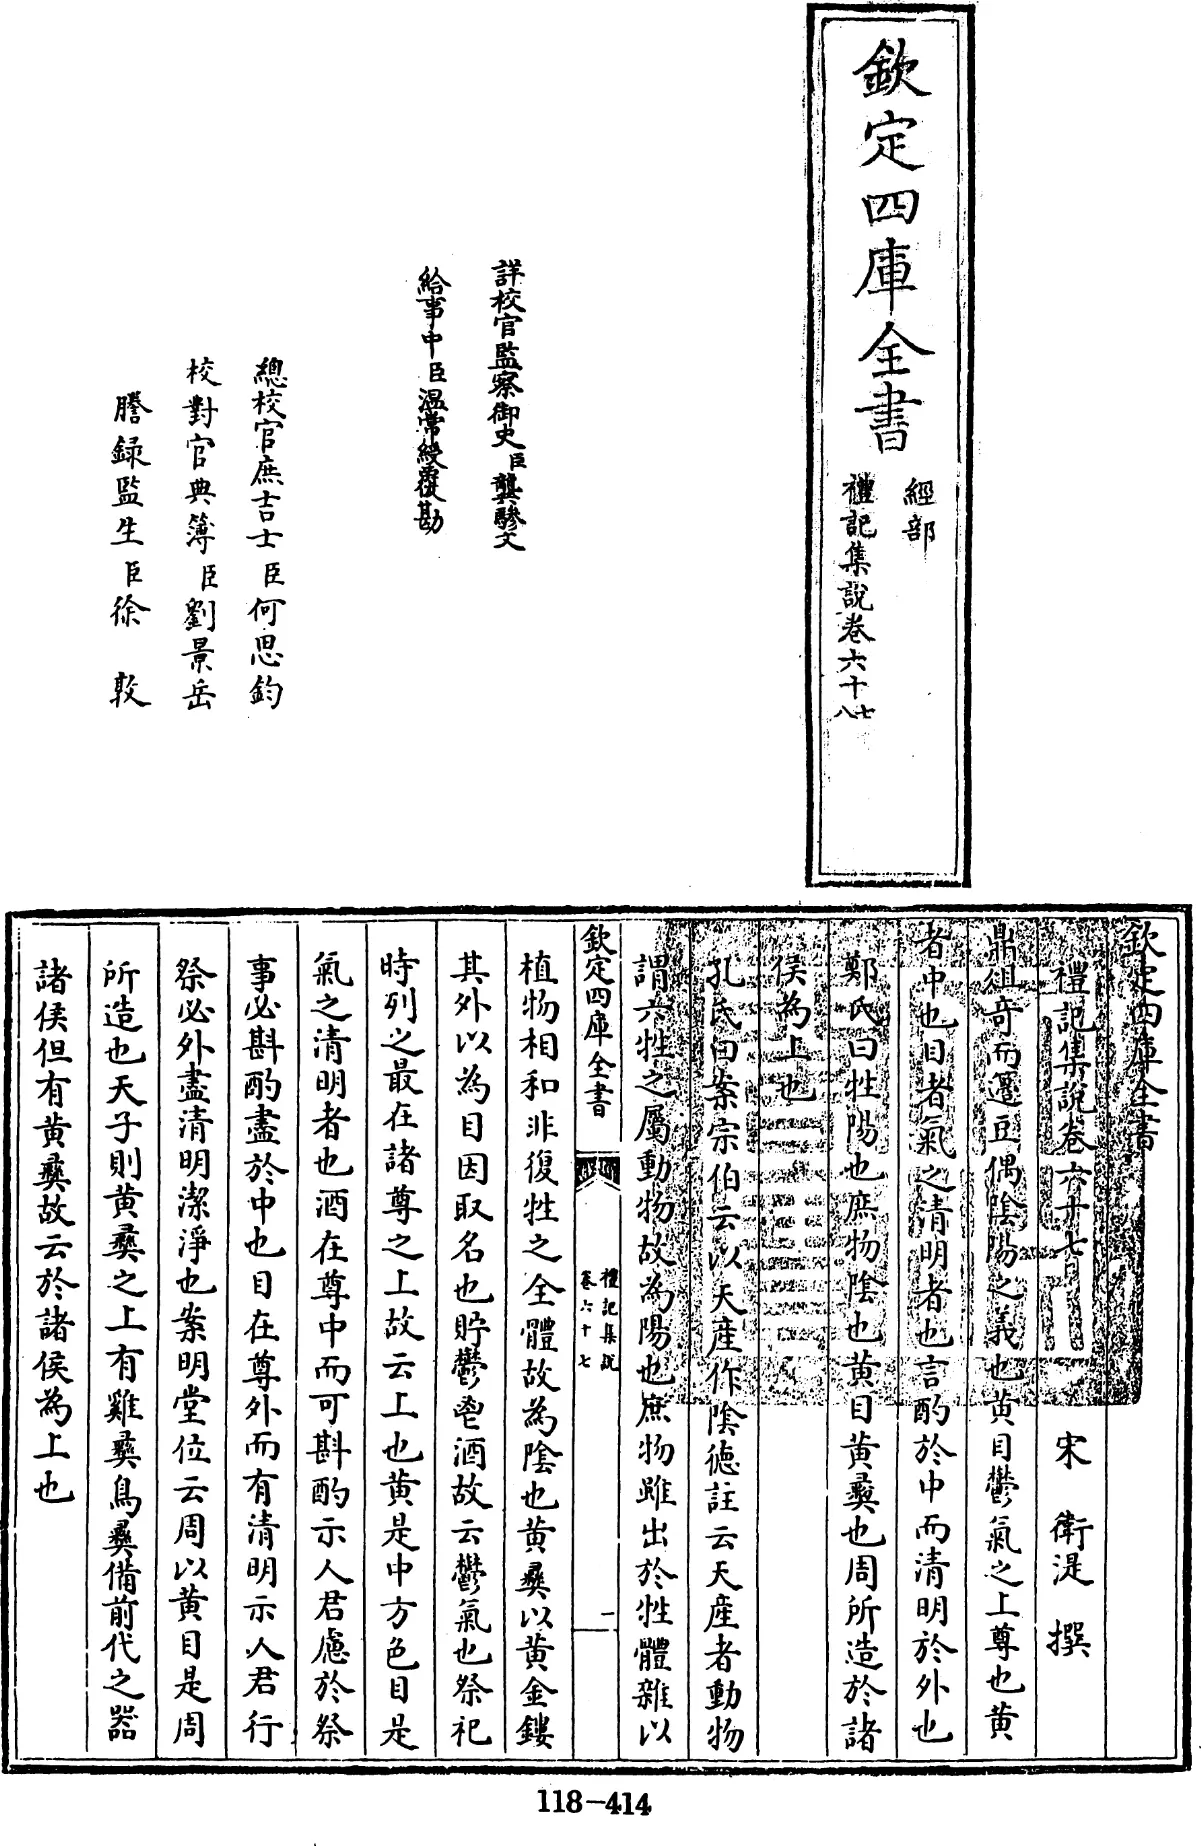 欽定四庫全書
經部
禮記集說卷六十七
八
詳校官監察御史臣龔驂文
給事中臣温常綬覆勘
總校官庶吉士臣何思鈞
校對官典簿臣劉景岳
謄録監生臣徐敦
欽定四庫全書
禮記集說卷六十七 宋 衛湜 撰
鼎俎竒而籩豆偶陰陽之義也黄目鬱氣之上尊也黄
者中也目者氣之清明者也言酌於中而清明於外也
鄭氏曰牲陽也庶物陰也黄目黄彛也周所造於諸
侯為上也
孔氏曰案宗伯云以天産作隂德註云天産者動物
謂六牲之屬動物故為陽也庶物雖出於牲體雜以
欽定四庫全書
禮記集說
卷六十七
一
植物相和非復牲之全體故為隂也黄彛以黄金鏤
其外以為目因取名也貯鬱鬯酒故云鬱氣也祭祀
時列之最在諸尊之上故云上也黄是中方色目是
氣之清明者也酒在尊中而可斟酌示人君慮於祭
事必斟酌盡於中也目在尊外而有清明示人君行
祭必外盡清明潔淨也案明堂位云周以黄目是周
所造也天子則黄彛之上有雞彛鳥彛備前代之器
諸侯但有黄彛故云於諸侯為上也
118-414